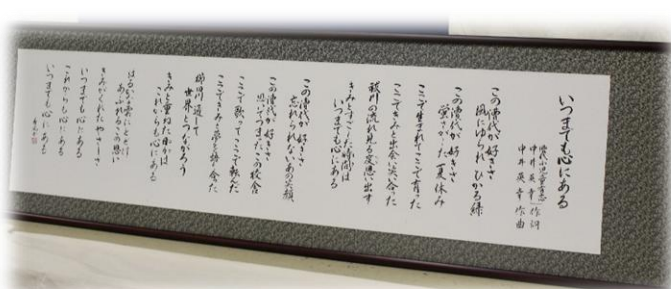 いつまでも心にある
中井英幸 作詞
中井英幸 作曲
この濃代が好きさ
風にゆられ ひかる緑
この濃代が好きさ
蛍をさがした夏休み
ここで生まれて ここで育った
ここできみと出会い 笑い合った
秋川の流れ見る度思い出す
きみとすごした時間は
いつまでも心にある
この濃代が好きさ
忘れられないあの笑顔
この濃代が好きさ
思いのつまったこの校舎
ここで歌って ここで飲んだ
ここできみと夢を語り合った
世界とつながろう
きみと重ねた月日は
これからも心にある
あふれるこの思い
きみがくれたやさしさ
いつまでも心にある
これからも心にある
いつまでも心にある